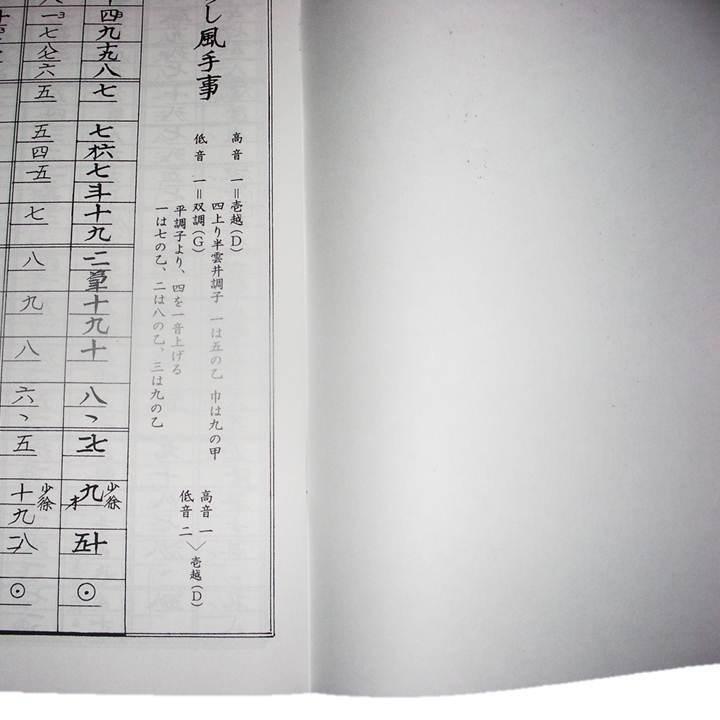 し風手事
高音 一＝壱越(D)
四上り半雲井調子 一は五の乙 巾は九の甲
低音 一＝双調(G)
平調子より、四を一音上げる
一は七の乙、二は八の乙、三は九の乙
高音 一
低音 二
＞壱越(D)
四 九 八 七 七 六 七 斗 十 九 二 十 九 十 八 ヽ 七 九 少徐 五 十 ⊙
一 七 六 五 五 四 五 七 八 九 八 六 ヽ 五 十 少徐 九 八 ⊙